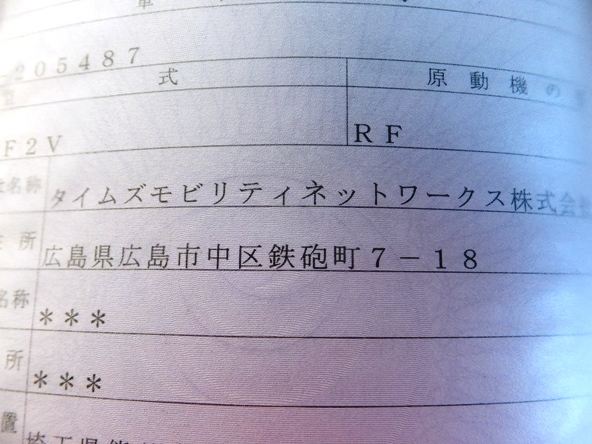 205487
式
原動機の
F2V
RF
名称
タイムズモビリティネットワークス株式会
所
広島県広島市中区鉄砲町7－18
名称
＊＊＊
所
＊＊＊
置
埼玉県熊